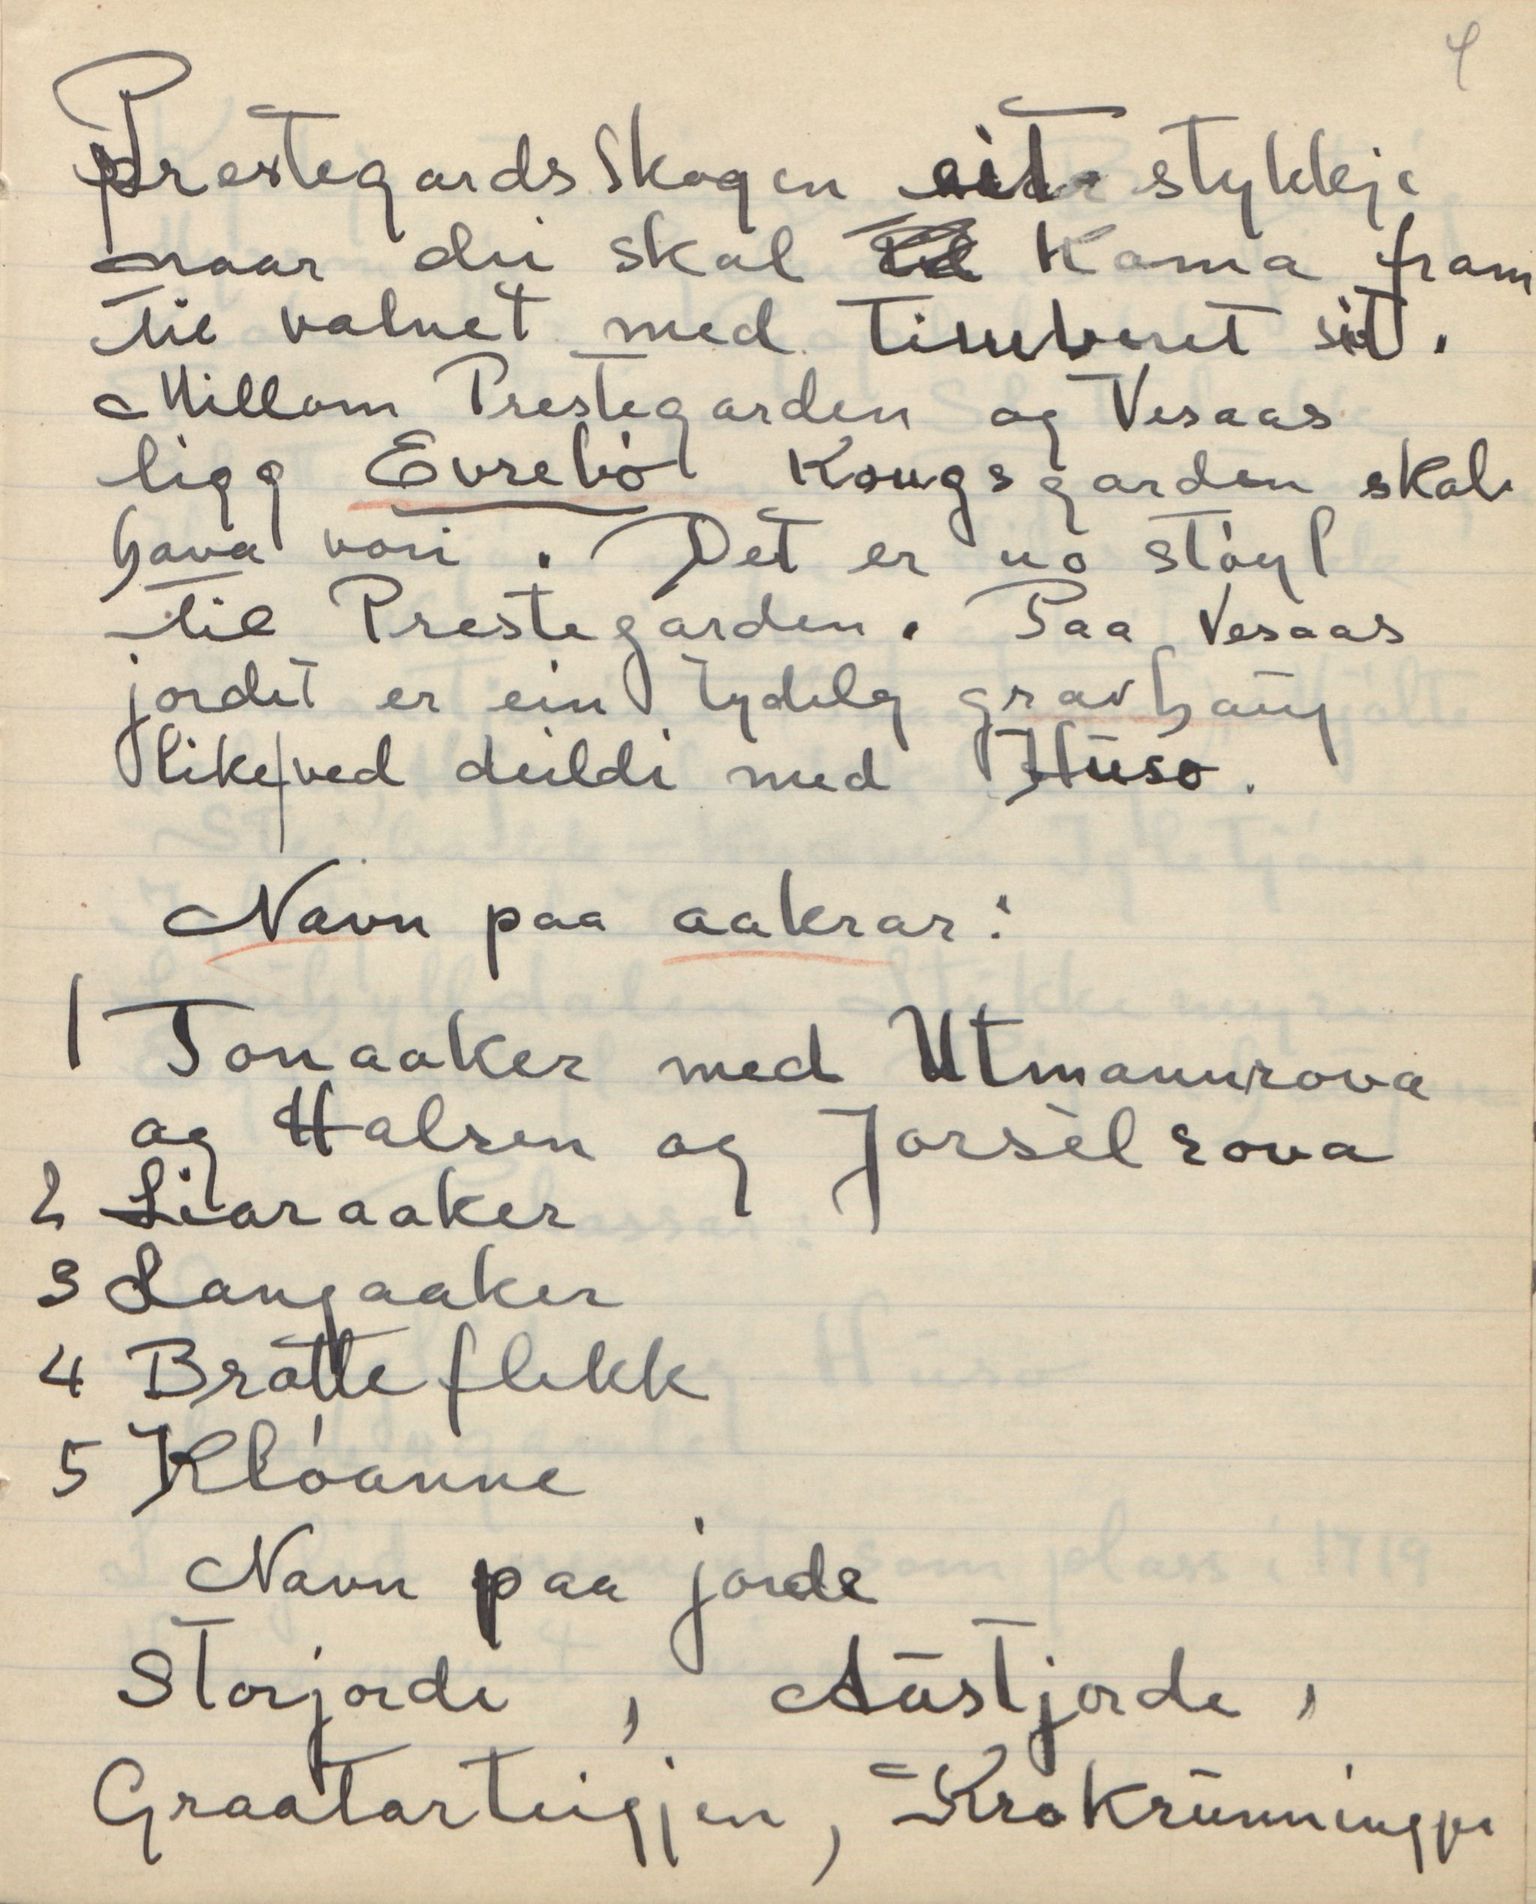 4
Prestegardsskogen eit stykkje
naar du skal koma fram
til vatnet med timberet sit.
Millom Prestegarden og Vesaas
ligg Evrebó Kongsgarden skal
hava vori. Det er no stóyl
til Prestegarden. Paa Vesaas
jordet er ein tydelg gravhaug
like ved deildi med Huso.
Navn paa aakrar:
1 Tonaaker med Utmannrova
og Halsen og Jorsèlrova
2 Liaraaker
3 Langaaker
4 Bratteflekk
5 Klóanne
Navn paa jorde
Storjorde, Austjorde,
Graatarteigjen, Krokrunningje